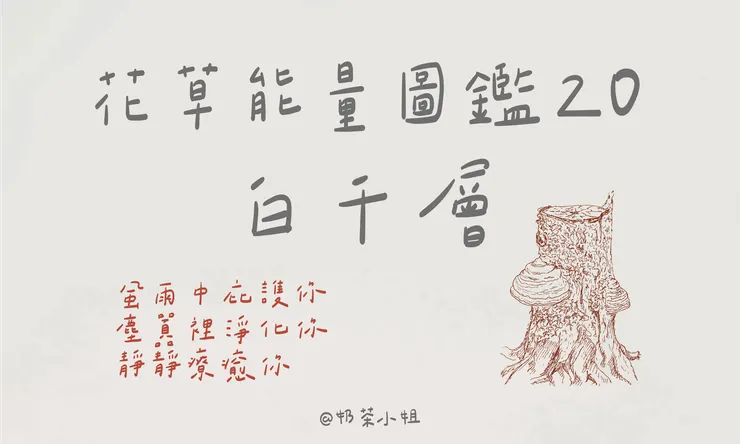 花草能量圖鑑20
白千層
風雨中庇護你
塵囂裡淨化你
靜靜療癒你
@奶茶小姐